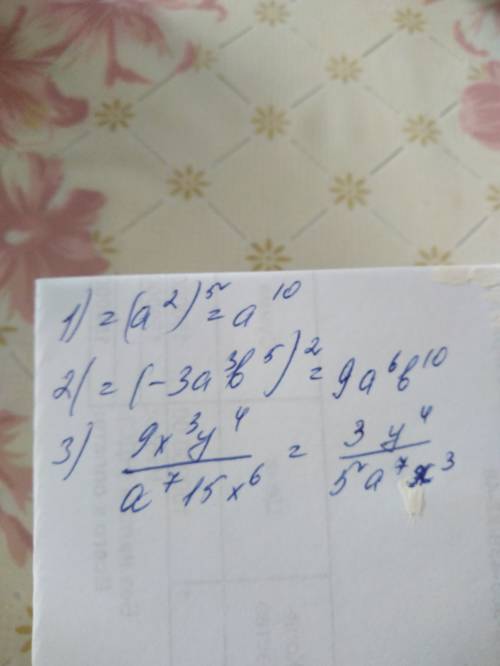 1) = (a²)⁵ = a¹⁰
2) = (-3a³b⁵)² = 9a⁶b¹⁰
3) 9x³y⁴ / a⁷15x⁶ = 3y⁴ / 5a⁷x³